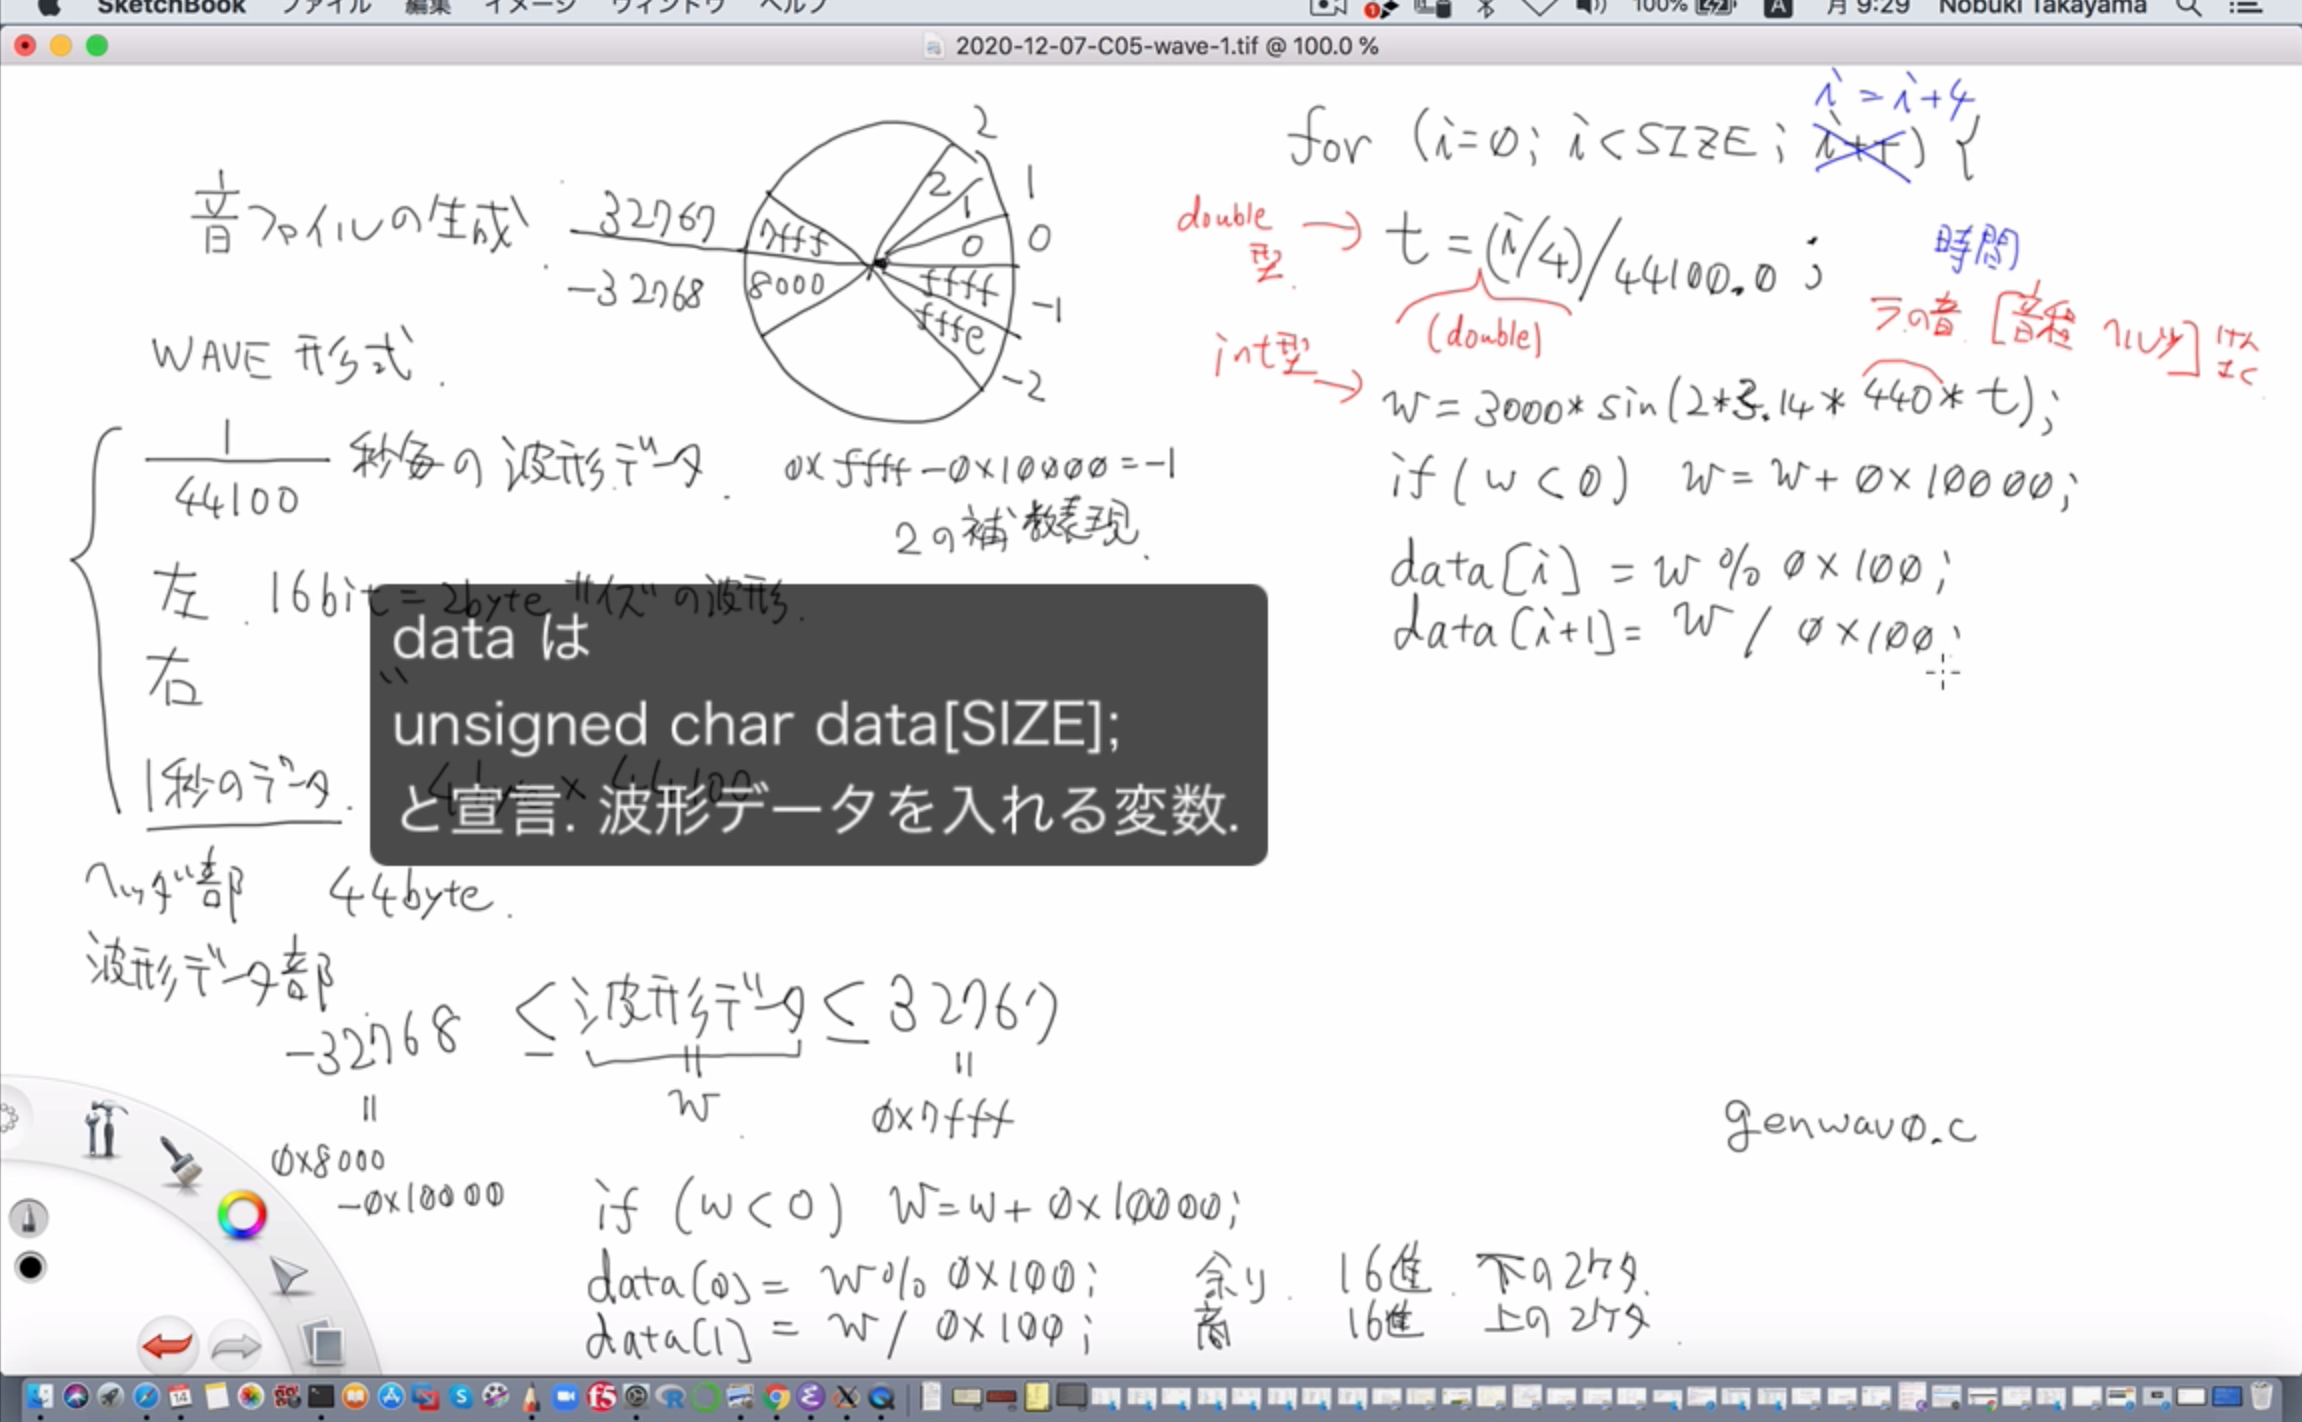 SketchBook ファイル 編集 イメージ ウィンドウ ヘルプ 100% A 月 9:29 Nobuki Takayama
2020-12-07-C05-wave-1.tif @ 100.0 %
音ファイルの生成.
32767
-32768
7fff
8000
2
1
0
ffff
fffe
2
1
0
-1
-2
WAVE 形式.
1
44100
秒毎の波形データ.
0xffff-0x10000=-1
2の補数表現.
左. 16bit=2byte サイズの波形.
右 〃
1秒のデータ. 4byte × 44100
data は
unsigned char data[SIZE];
と宣言. 波形データを入れる変数.
ヘッダ部 44byte.
波形データ部
-32768 ≤ 波形データ ≤ 32767
= = =
0x8000 w 0x7fff
-0x10000
if (w<0) w=w+0x10000;
data(0)= w%0x100; 余り. 16進. 下の2ケタ.
data[1] = w/0x100; 商 16進 上の2ケタ.
i=i+4
for (i=0; i<SIZE; i++) {
double型. → t=(i/4)/44100.0; 時間
(double)
ラの音. [音程 ヘルツ]
int型 → w=3000*sin(2*3.14*440*t);
if(w<0) w=w+0x10000;
data[i] = w%0x100;
data[i+1]= w/0x100;
genwav0.c